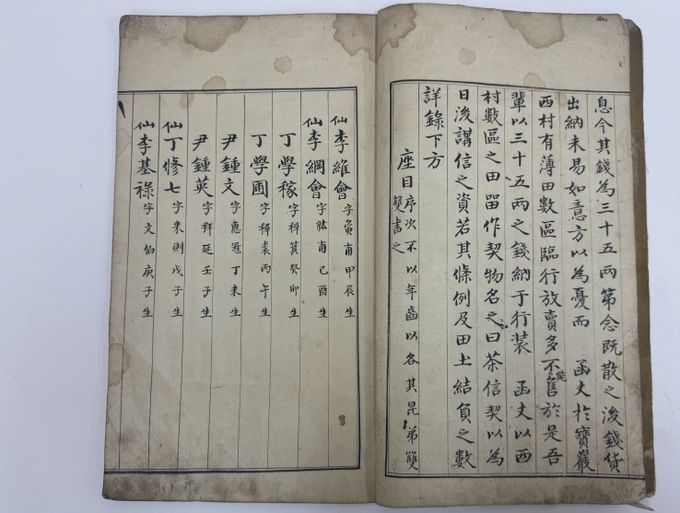 息今其錢為三十五兩第念旣散之後錢貨
出納未易如意方以為憂而 函丈於寶巖
西村有薄田數區臨行放賣多不能售於是吾
輩以三十五兩之錢納于行裝 函丈以西
村數區之田留作契物名之曰茶信契以為
日後講信之資若其條例及田土結負之數
詳錄下方
座目 序次不以年齒以各其昆弟雙
雙書之
仙李維會 字 甫甲辰生
仙李綱會 字紘甫己酉生
丁學稼 字穉箕癸卯生
丁學圃 字穉裘丙午生
尹鍾文 字惠冠丁未生
尹鍾英 字拜延壬子生
仙丁修七 字來則戊子生
仙李基祿 字文伯庚子生